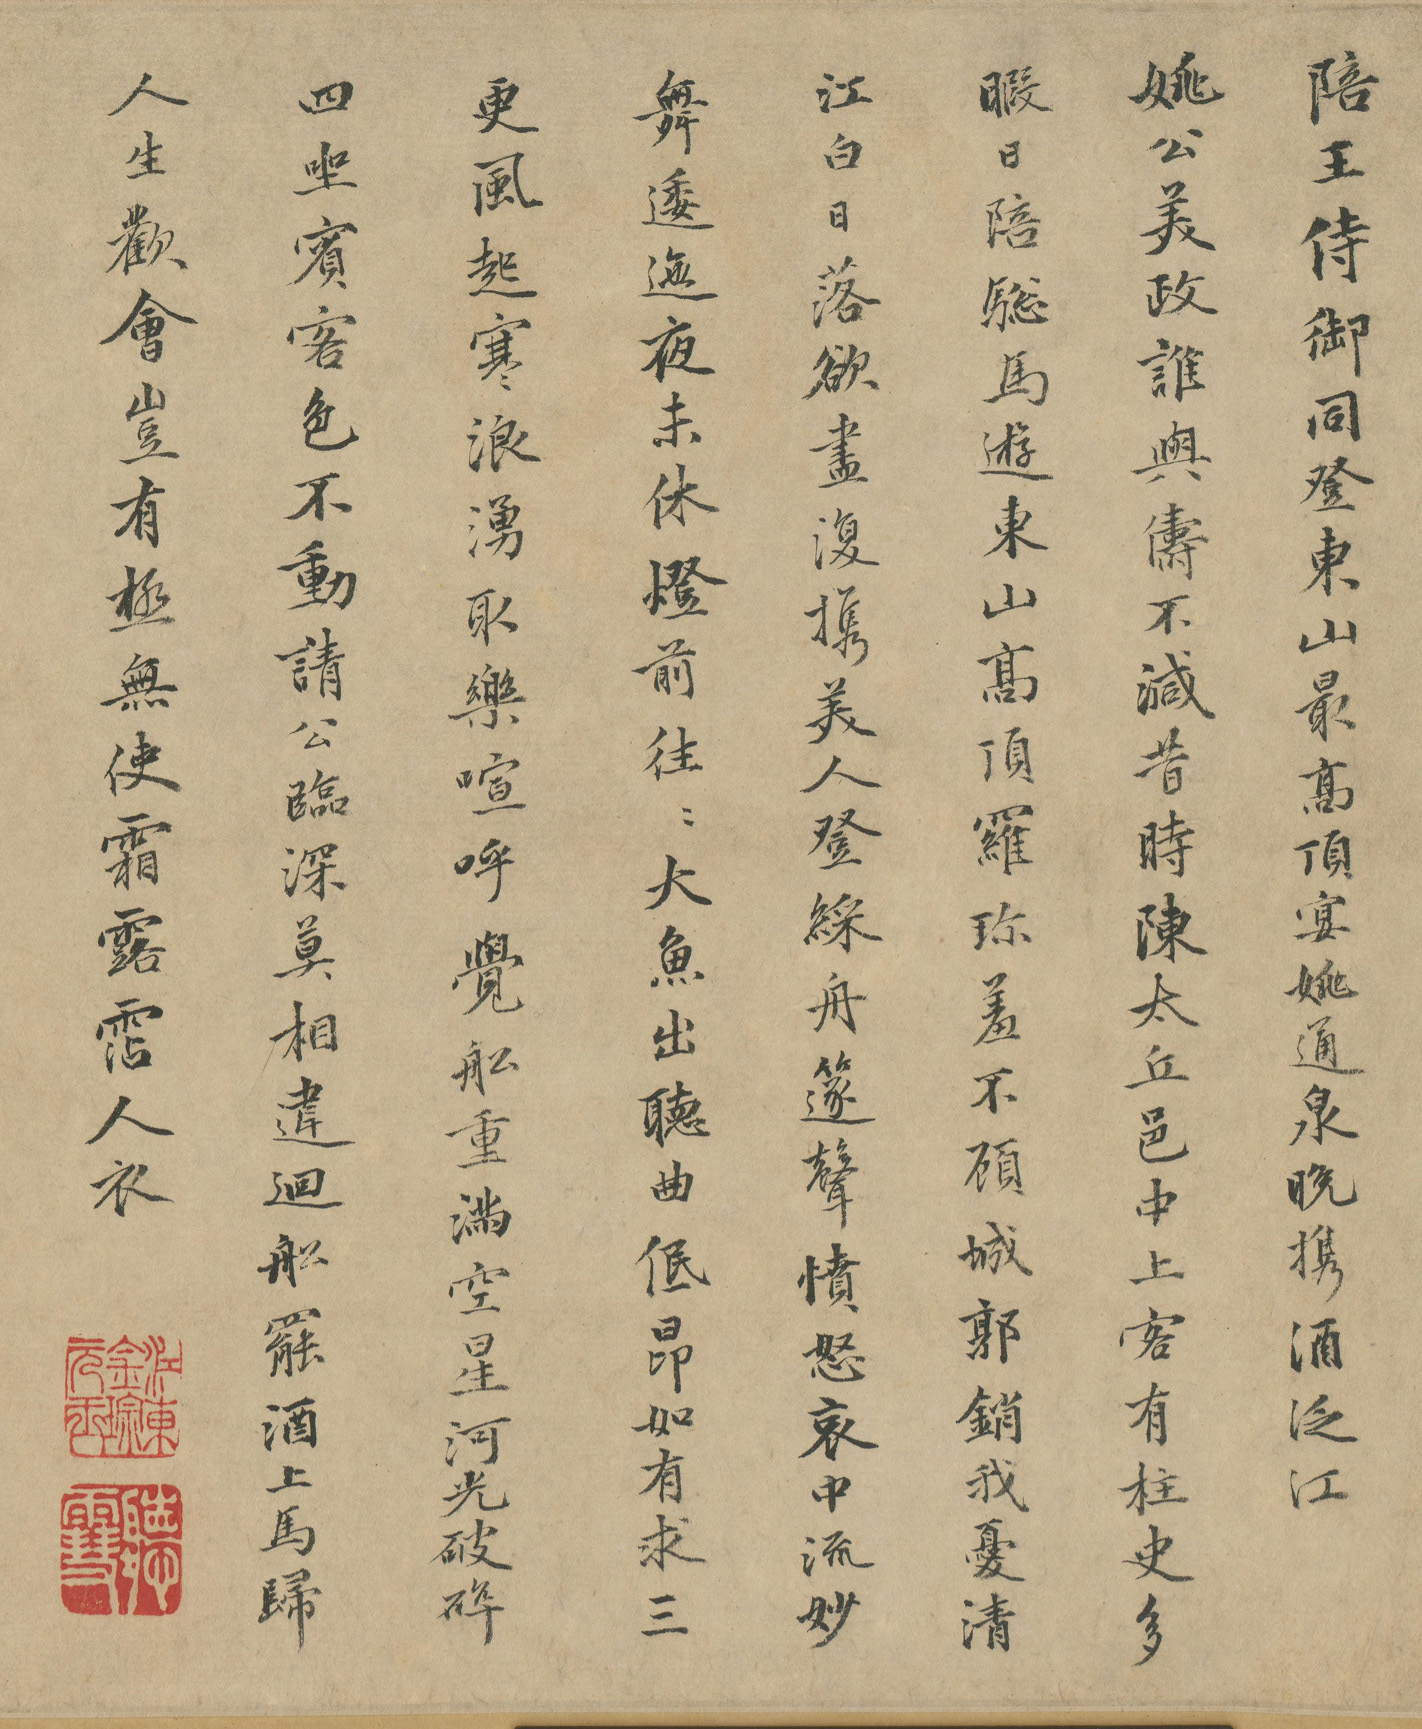 陪王侍御同登東山最髙頂宴姚通泉晚携酒泛江
姚公美政誰與儔不減昔時陳太丘邑中上客有柱史多
暇日陪驄馬遊東山髙頂羅珎羞不顧城郭銷我憂清
江白日落欲盡復携美人登綵舟篴聲憤怒哀中流妙
舞逶迤夜未休燈前往〻大魚出聴曲低昂如有求三
更風起寒浪湧取樂喧呼覺舩重滿空星河光破碎
四坐賓客色不動請公臨深莫相違迴舩罷酒上馬歸
人生歡會豈有極無使霜露霑人衣